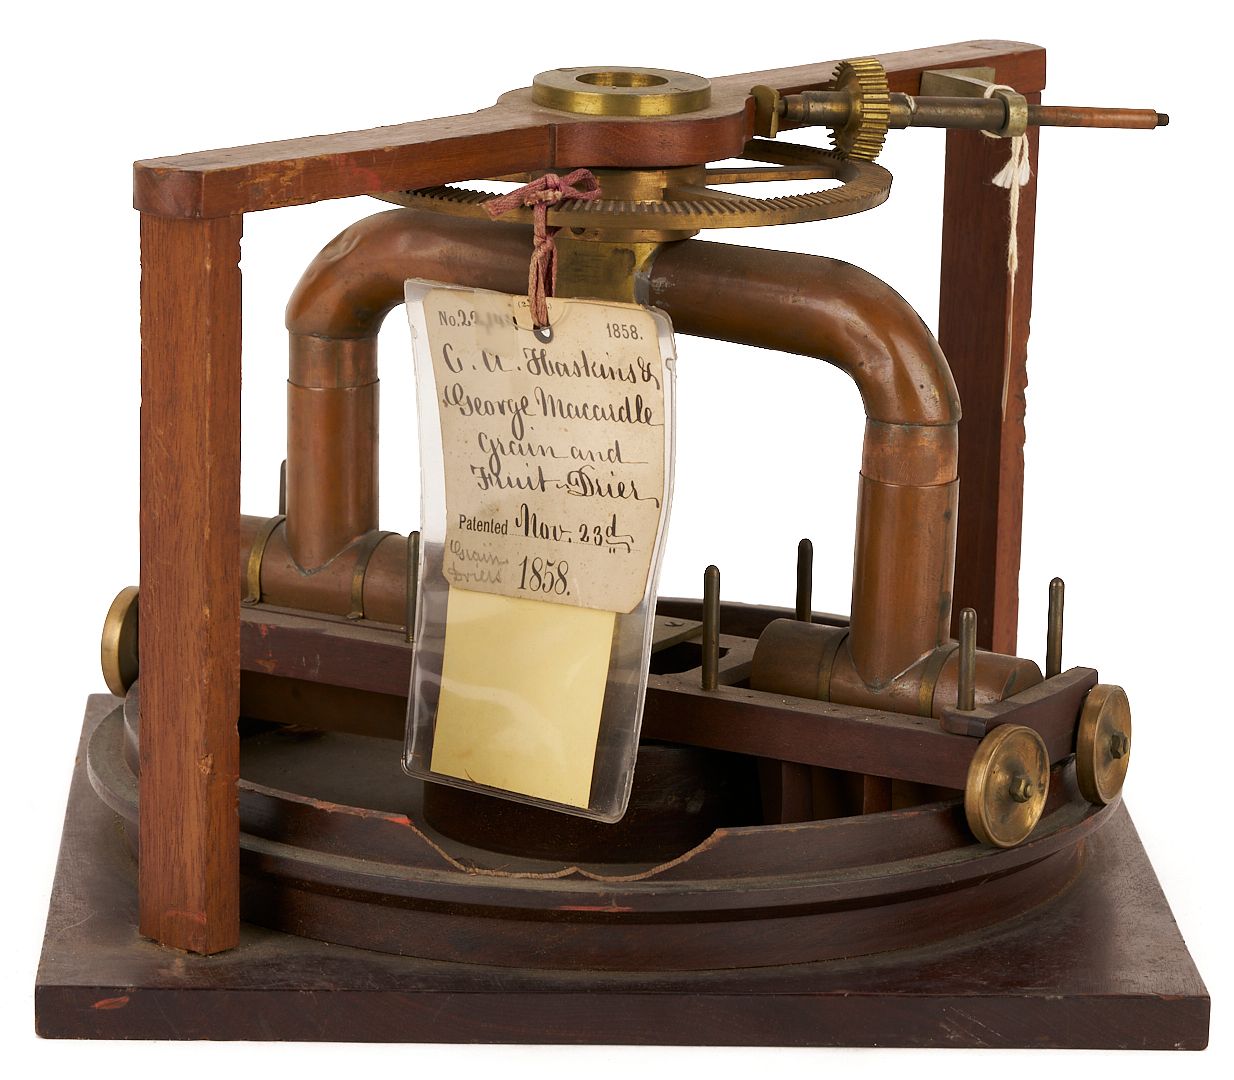 No. 22
1858.
C. A. Haskins &
George Macardle
Grain and
Fruit Drier
Patented Nov. 23d
Grain
Driers
1858.